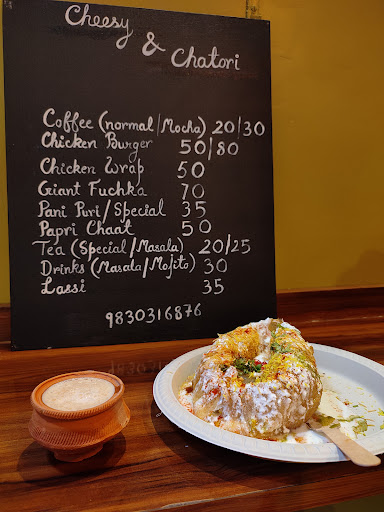 Cheesy
& Chatori
Coffee (normal/Mocha) 20/30
Chicken Burger 50/80
Chicken Wrap 50
Giant Fuchka 70
Pani Puri/Special 35
Papri Chaat 50
Tea (Special/Masala) 20/25
Drinks (Masala/Mojito) 30
Lassi 35
9830316876